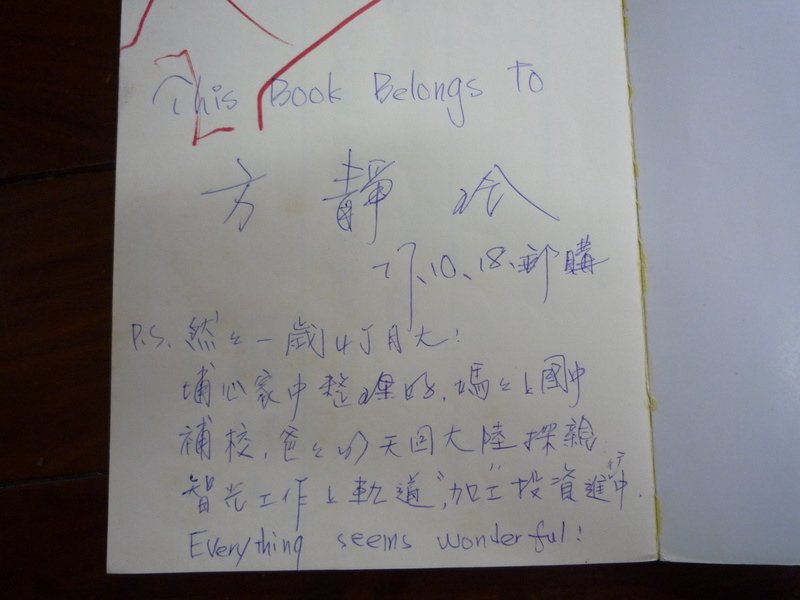 This Book Belongs to
方 靜
77、10、18、郵購
P.S. 然々一歲4個月大!
埔心家中整理好,媽々上國中
補校,爸々 天回大陸探親
智光工作上軌道,"加工"投資進行中.
Everything seems wonderful!